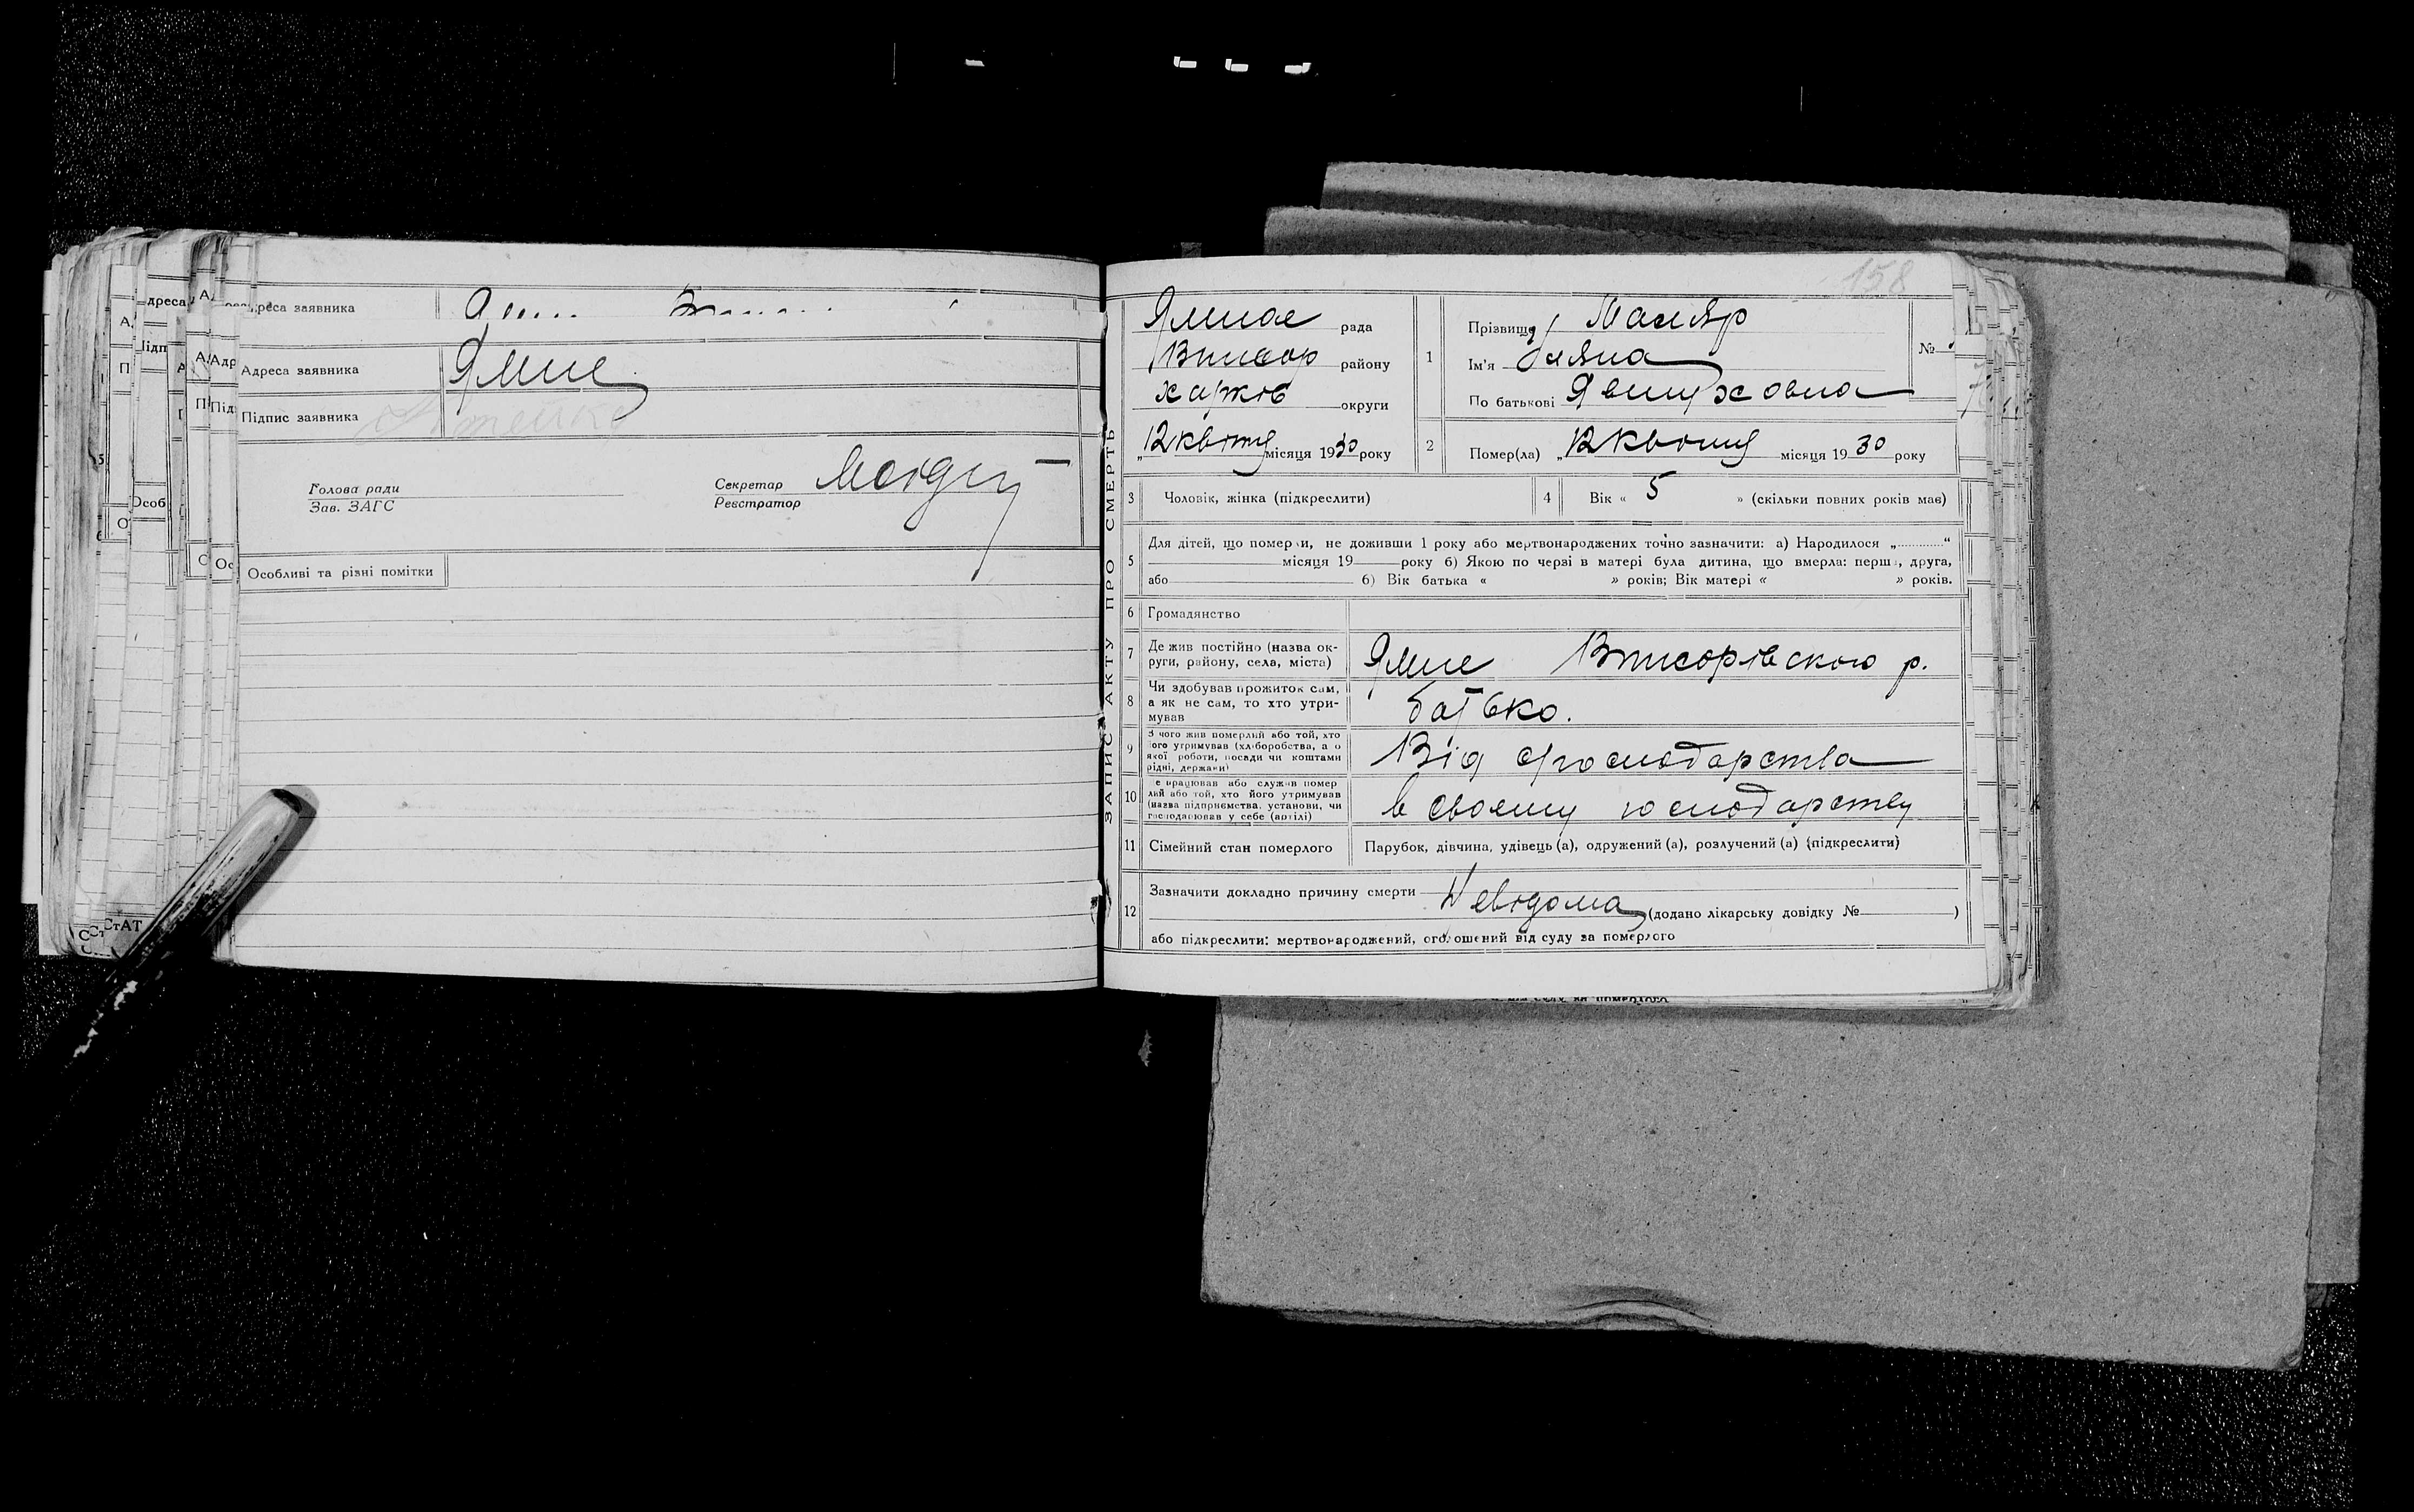 Адреса заявника
Адреса заявника Ямне
Підпис заявника
Голова ради
Зав. ЗАГС
Секретар
Реєстратор
Особливі та різні помітки
158
ЗАПИС АКТУ ПРО СМЕРТЬ
рада
району
Харків округи
„12 квітня місяця 1930 року
1
Прізвище Маляр
Ім'я Уляна
По батькові
№
2 Помер(ла) „12 квітня місяця 1930 року
3 Чоловік, жінка (підкреслити)
4 Вік « 5 » (скільки повних років має)
5 Для дітей, що померли, не доживши 1 року або мертвонароджених точно зазначити: а) Народилося „ “
місяця 19 року б) Якою по черзі в матері була дитина, що вмерла: перша, друга,
або б) Вік батька « » років; Вік матері « » років.
6 Громадянство
7 Де жив постійно (назва ок-
руги, району, села, міста) Ямне р.
8 Чи здобував прожиток сам,
а як не сам, то хто утри-
мував батько.
9 З чого жив померлий або той, хто
його утримував (хліборобства, а о
якої роботи, посади чи коштами
рідні, держави) Від господарства
10 е працював або служив помер
лий або той, хто його утримував
(назва підприємства, установи, чи
господарював у себе (артілі) в своєму господарству
11 Сімейний стан померлого Парубок, дівчина, удівець (а), одружений (а), розлучений (а) (підкреслити)
12 Зазначити докладно причину смерти Невідома
(додано лікарську довідку № )
або підкреслити: мертвонароджений, оголошений від суду за померлого